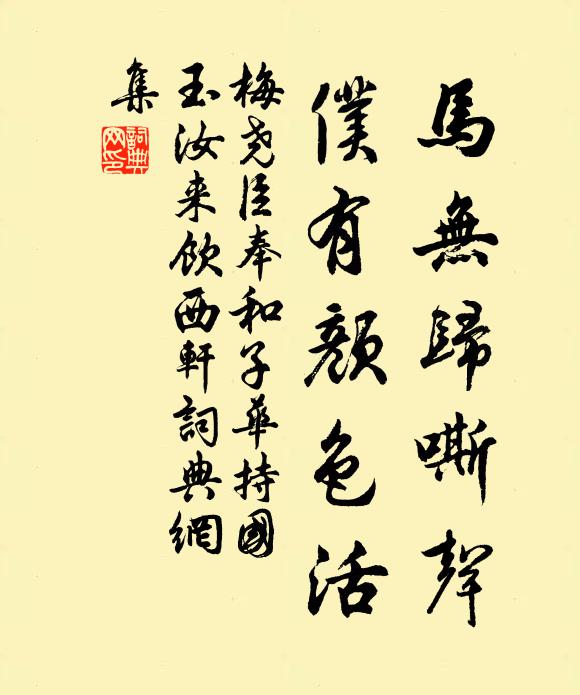 馬無歸嘶聲
僕有顏色活
梅尧臣奉和子華持國
玉汝来飲西軒詞典網
集
詞典网印